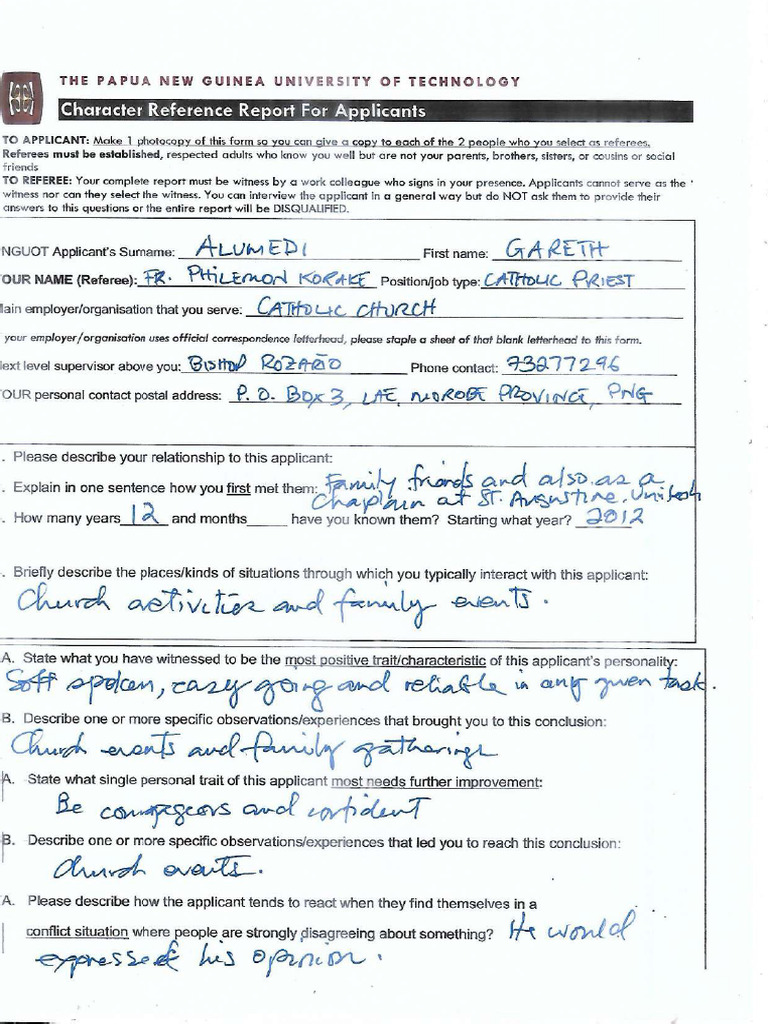 THE PAPUA NEW GUINEA UNIVERSITY OF TECHNOLOGY
Character Reference Report For Applicants
TO APPLICANT: Make 1 photocopy of this form so you can give a copy to each of the 2 people who you select as referees.
Referees must be established, respected adults who know you well but are not your parents, brothers, sisters, or cousins or social
friends
TO REFEREE: Your complete report must be witness by a work colleague who signs in your presence. Applicants cannot serve as the
witness nor can they select the witness. You can interview the applicant in a general way but do NOT ask them to provide their
answers to this questions or the entire report will be DISQUALIFIED.
NGUOT Applicant's Surname: ALUMEDI First name: GARETH
OUR NAME (Referee): FR. PHILEMON KORAKE Position/job type: CATHOLIC PRIEST
ain employer/organisation that you serve: CATHOLIC CHURCH
your employer/organisation uses official correspondence letterhead, please staple a sheet of that blank letterhead to this form.
ext level supervisor above you: BISHOP ROZARIO Phone contact: 73277296
OUR personal contact postal address: P.O. BOX 3, LAE, MOROBE PROVINCE, PNG
. Please describe your relationship to this applicant:
. Explain in one sentence how you first met them: Family friends and also as a
Chaplain at ST. Augustine, Unitech
. How many years 12 and months____ have you known them? Starting what year? 2012
. Briefly describe the places/kinds of situations through which you typically interact with this applicant:
Church activities and family events.
A. State what you have witnessed to be the most positive trait/characteristic of this applicant's personality:
Soft spoken, easy going and reliable in any given task.
B. Describe one or more specific observations/experiences that brought you to this conclusion:
Church events and family gatherings
A. State what single personal trait of this applicant most needs further improvement:
Be courageous and confident
B. Describe one or more specific observations/experiences that led you to reach this conclusion:
Church events.
A. Please describe how the applicant tends to react when they find themselves in a
conflict situation where people are strongly disagreeing about something? He would
expressed his opinion.